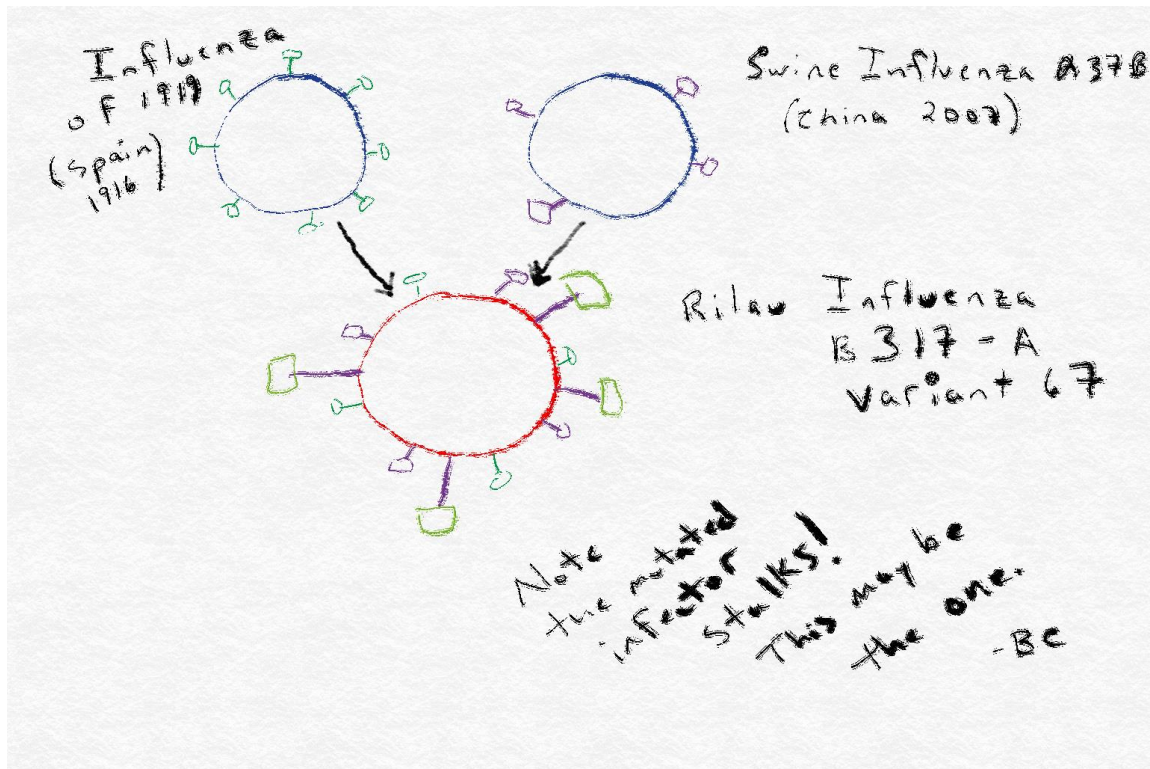 Influenza
of 1919
(Spain)
1916
Swine Influenza A37B
(China 2007)
Rilau Influenza
B317-A
Variant 67
Note
the mutated
infector
stalks!
This may be
the one.
-BC